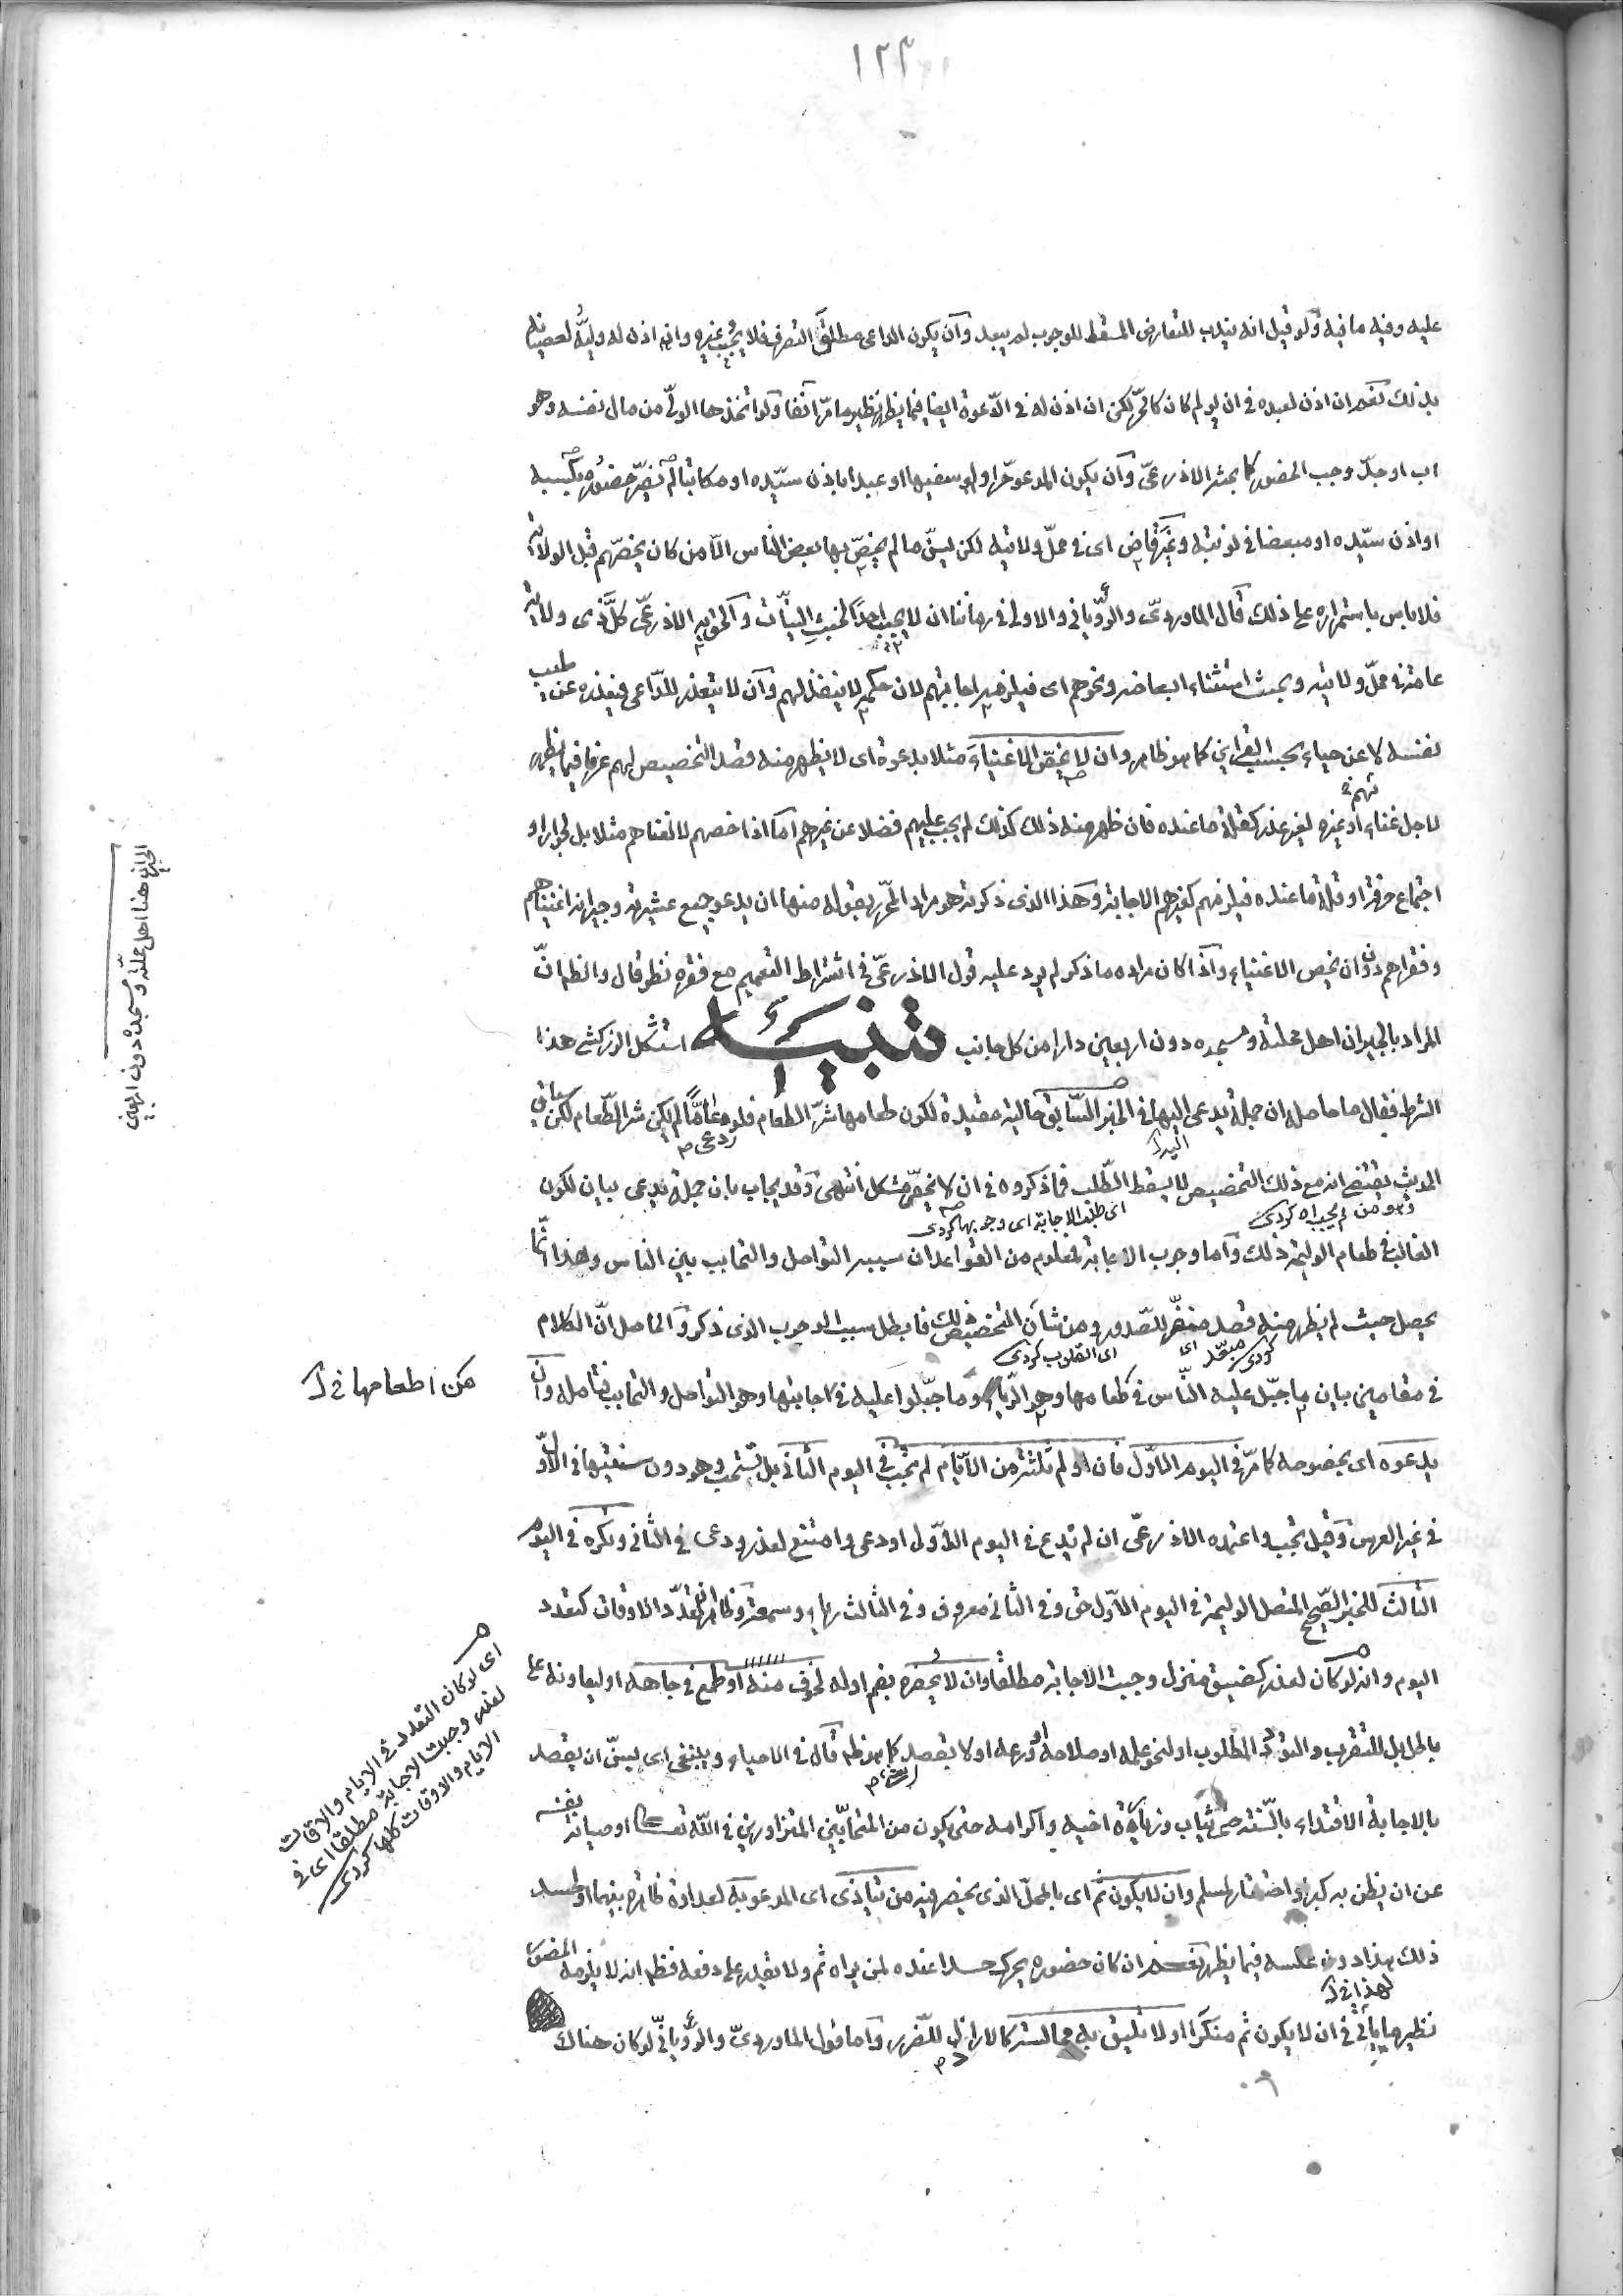 ١٢٣
عليه وفيه ما فيه ولو قيل انه يندب للتعارض المسقط للوجوب لم يبعد وان يكون الداعى مطلق التصرف فلا يجيب غيره وان اذن له وليّه لعصيانه
بذلك نعم ان اذن لعبده فى ان يولم كان كالحرّ لكن ان اذن له فى الدّعوة ايضا فيما يظهر نظير ما مرّ آنفا ولو اتخذها الولىّ من مال نفسه وهو
اب او جدّ وجب الحضور كما بحثه الاذرعىّ وان يكون المدعو حرّا ولو سفيها او عبدا باذن سيّده او مكاتبا لم يضرّ حضوره بكسبه
او اذن سيّده او مبعضا فى نوبته وغير قاض اى فى محلّ ولايته لكن يسنّ ما لم يخصّ بها بعض الناس الّا من كان يخصّهم قبل الولاية
فلا باس باستمراره على ذلك قال الماوردىّ والرّؤيانى والاولى فى زماننا ان لا يجيب احدا لخبث النيّات والحق به الاذرعىّ كلّ ذى ولاية
عامة فى محلّ ولايته وبحث استثناء ابعاضه ونحوهم اى فيلزمه اجابتهم لان حكمه لا ينفذ لهم وان لا يتعذر للدّاعى فيعذره عن طيب
نفسه لا عن حياء بحسب القراين كما هو ظاهر وان لا يخصّ الاغنياء مثلا بدعوة اى لا يظهر منه قصد التخصيص لهم عرفا فيما يظهر
لاجل غناهم او غيره لغير عذر كقلة ما عنده فان ظهر منه ذلك كذلك لم يجب عليهم فضلا عن غيرهم اما اذا خصهم لا لغناهم مثلا بل لجوار او
اجتماع حرفة او قلة ما عنده فيلزمهم كغيرهم الاجابة وهذا الذى ذكرته هو مراد المحرّر بقوله منها ان يدعو جميع عشيرته وجيرانه اغنيائهم
وفقراهم دون ان يخص الاغنياء واذا كان مراده ما ذكر لم يرد عليه قول الاذرعىّ فى اشتراط التعميم مع فقره نظر قال والظ انّ
المراد بالجيران اهل محلته ومسجده دون اربعين دارا من كل جانب تنبيه استشكل الزركشى هذا
الشرط فقال ما حاصله ان جملة يدعى اليها فى الخبر السّابق حالية مقيدة لكون طعامها شرّ الطعام فلو دعا عامّا لم يكن شر الطّعام لكن سياق
دعى م
اليه
الحديث يقتضى انه مع ذلك التخصيص لا يسقط الطّلب فما ذكروه فى ان لا يخصّ مشكل انتهى وقد يجاب بان جملة يدعى بيان لكون
وهو ومن لم يجب اه كردى
اى طلب الاجابة اى وجوبها كردى
الغالب فى طعام الوليمة ذلك واما وجوب الاجابة لمعلوم من القواعد ان سببه التواصل والتحابب بين الناس وهذا انّما
يحصل حيث لم يظهر منه قصد منفّر للصّدور ومن شان التخصيص ذلك فابطل سبب الوجوب الذى ذكر والحاصل انّ الكلام
اى مبعّد كردى
اى القلوب كردى
فى مقامين بيان ما جبّل عليه النّاس فى طعامها وهو الرّياء وما جبّلوا عليه فى اجابتها وهو التواصل والتحابب فتامله وان
يدعوه اى بخصوصه كما مرّ فى اليوم الاوّل فان اولم ثلثة من الايّام لم تجب فى اليوم الثانى بل تستحب وهو دون سنتيها فى الاوّل
فى غير العرس وقيل تجب واعتمده الاذرعىّ ان لم يدع فى اليوم الاوّل او دعى وامتنع لعذر ودعى فى الثانى وتكره فى اليوم
الثالث للخبر الصّحيح المتصل الوليمة فى اليوم الاوّل حق وفى الثانى معروف وفى الثالث رياء وسمعة وظاهر تعدّد الاوقات كتعدد
اليوم وانه لو كان لعذر كضيق منزل وجبت الاجابة مطلقا وان لا يحضره بفم اوله لخوف منه او طمع فى جاهه او ليعاونه على
باطل بل للتقرب والتودّد المطلوب او لنحو علمه او صلاحه او ورعه او لا بقصد كما هو ظ قال فى الاحياء وينبغى اى يسنّ ان يقصد
بالاجابة الاقتداء بالسّنّة حتى يثاب وزيارة اخيه واكرامه حتى يكون من المتحابّين المتزاورين فى اللّه تعالى او صيانة نفسه
عن ان يظن به كبر او احتقار لمسلم وان لا يكون ثم اى بالمحلّ الذى يحضر فيه من يتاذى اى المدعو به لعداوة ظاهرة بينهما او لحسد
ذلك لهذا دون عكسه فيما يظهر نعم ان كان حضوره يحرك حسدا عنده لمن يراه ثم ولا يقدر على دفعه فظ انه لا يلزمه الحضور
لهذا فى
نظير ما ياتى فى ان لا يكون ثم منكرا او لا تليق به مجالسته كالاراذل للضّرر واما قول الماوردىّ والرّؤيانىّ لو كان هناك
الجيران هنا اهل محلّته ومسجده دون اربعين
من اطعامها فى
اى لو كان التعدد فى الايام والاوقات
لعذر وجبت الاجابة مطلقا اى فى
الايام والاوقات كلها كردى